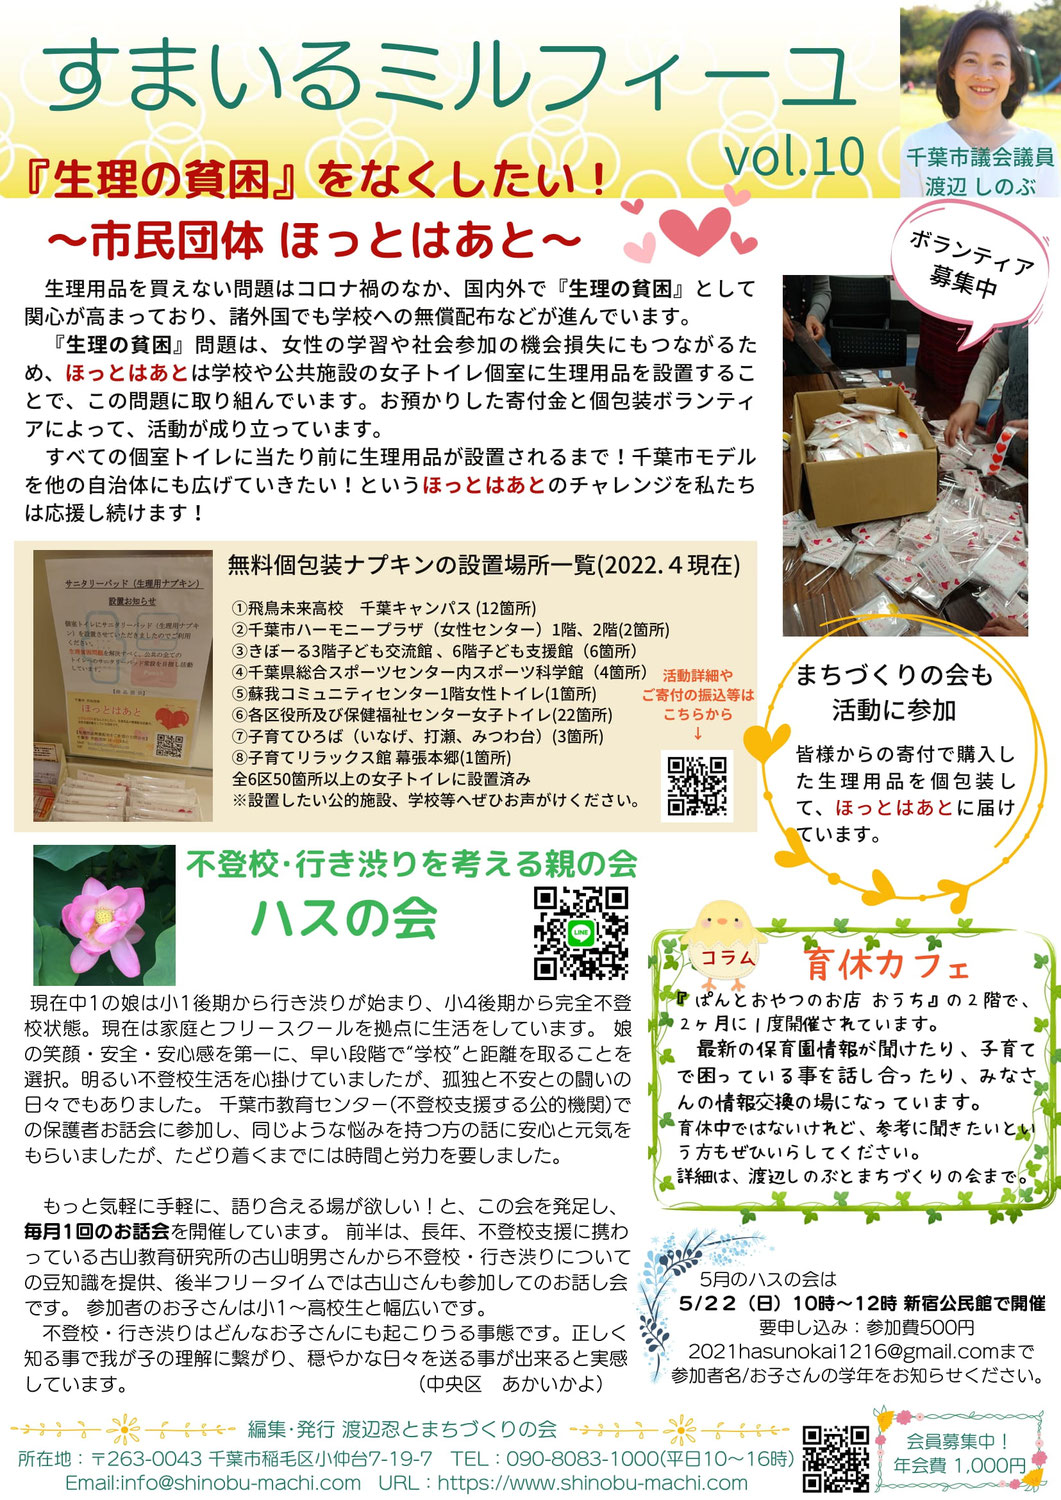 すまいるミルフィーユ
vol.10
千葉市議会議員
渡辺 しのぶ
『生理の貧困』をなくしたい！
～市民団体 ほっとはあと～
ボランティア
募集中
生理用品を買えない問題はコロナ禍のなか、国内外で『生理の貧困』として
関心が高まっており、諸外国でも学校への無償配布などが進んでいます。
『生理の貧困』問題は、女性の学習や社会参加の機会損失にもつながるた
め、ほっとはあとは学校や公共施設の女子トイレ個室に生理用品を設置するこ
とで、この問題に取り組んでいます。お預かりした寄付金と個包装ボランティ
アによって、活動が成り立っています。
すべての個室トイレに当たり前に生理用品が設置されるまで！千葉市モデル
を他の自治体にも広げていきたい！というほっとはあとのチャレンジを私たち
は応援し続けます！
サニタリーパッド（生理用ナプキン）
設置お知らせ
ほっとはあと
無料個包装ナプキンの設置場所一覧(2022.４現在)
①飛鳥未来高校　千葉キャンパス (12箇所)
②千葉市ハーモニープラザ（女性センター）1階、2階(2箇所)
③きぼーる3階子ども交流館 、6階子ども支援館（6箇所）
④千葉県総合スポーツセンター内スポーツ科学館（4箇所）
⑤蘇我コミュニティセンター1階女性トイレ(1箇所)
⑥各区役所及び保健福祉センター女子トイレ(22箇所)
⑦子育てひろば（いなげ、打瀬、みつわ台）(3箇所)
⑧子育てリラックス館 幕張本郷(1箇所)
全6区50箇所以上の女子トイレに設置済み
※設置したい公的施設、学校等へぜひお声がけください。
活動詳細や
ご寄付の振込等は
こちらから
↓
まちづくりの会も
活動に参加
皆様からの寄付で購入し
た生理用品を個包装し
て、ほっとはあとに届け
ています。
不登校･行き渋りを考える親の会
ハスの会
LINE
現在中1の娘は小1後期から行き渋りが始まり、小4後期から完全不登
校状態。現在は家庭とフリースクールを拠点に生活をしています。 娘
の笑顔・安全・安心感を第一に、早い段階で“学校”と距離を取ることを
選択。明るい不登校生活を心掛けていましたが、孤独と不安との闘いの
日々でもありました。 千葉市教育センター(不登校支援する公的機関)で
の保護者お話会に参加し、同じような悩みを持つ方の話に安心と元気を
もらいましたが、たどり着くまでには時間と労力を要しました。
もっと気軽に手軽に、語り合える場が欲しい！と、この会を発足し、
毎月1回のお話会を開催しています。 前半は、長年、不登校支援に携わ
っている古山教育研究所の古山明男さんから不登校・行き渋りについて
の豆知識を提供、後半フリータイムでは古山さんも参加してのお話し会
です。 参加者のお子さんは小1～高校生と幅広いです。
不登校・行き渋りはどんなお子さんにも起こりうる事態です。正しく
知る事で我が子の理解に繋がり、穏やかな日々を送る事が出来ると実感
しています。　（中央区　あかいかよ）
コラム
育休カフェ
『ぱんとおやつのお店 おうち』の２階で、
２ヶ月に１度開催されています。
最新の保育園情報が聞けたり、子育て
で困っている事を話し合ったり、みなさ
んの情報交換の場になっています。
育休中ではないけれど、参考に聞きたいとい
う方もぜひいらしてください。
詳細は、渡辺しのぶとまちづくりの会まで。
5月のハスの会は
5/２２（日）10時～12時 新宿公民館で開催
要申し込み：参加費500円
2021hasunokai1216@gmail.comまで
参加者名/お子さんの学年をお知らせください。
編集･発行 渡辺忍とまちづくりの会
所在地：〒263-0043 千葉市稲毛区小仲台7-19-7　TEL：090-8083-1000(平日10～16時)
Email:info@shinobu-machi.com　URL：https://www.shinobu-machi.com
会員募集中！
年会費 1,000円